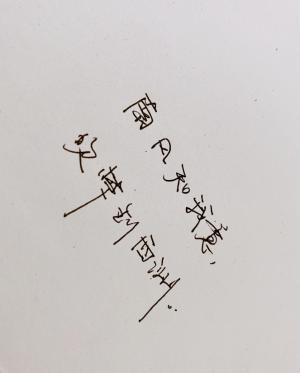 南风知我意,
吹夢到西洲.